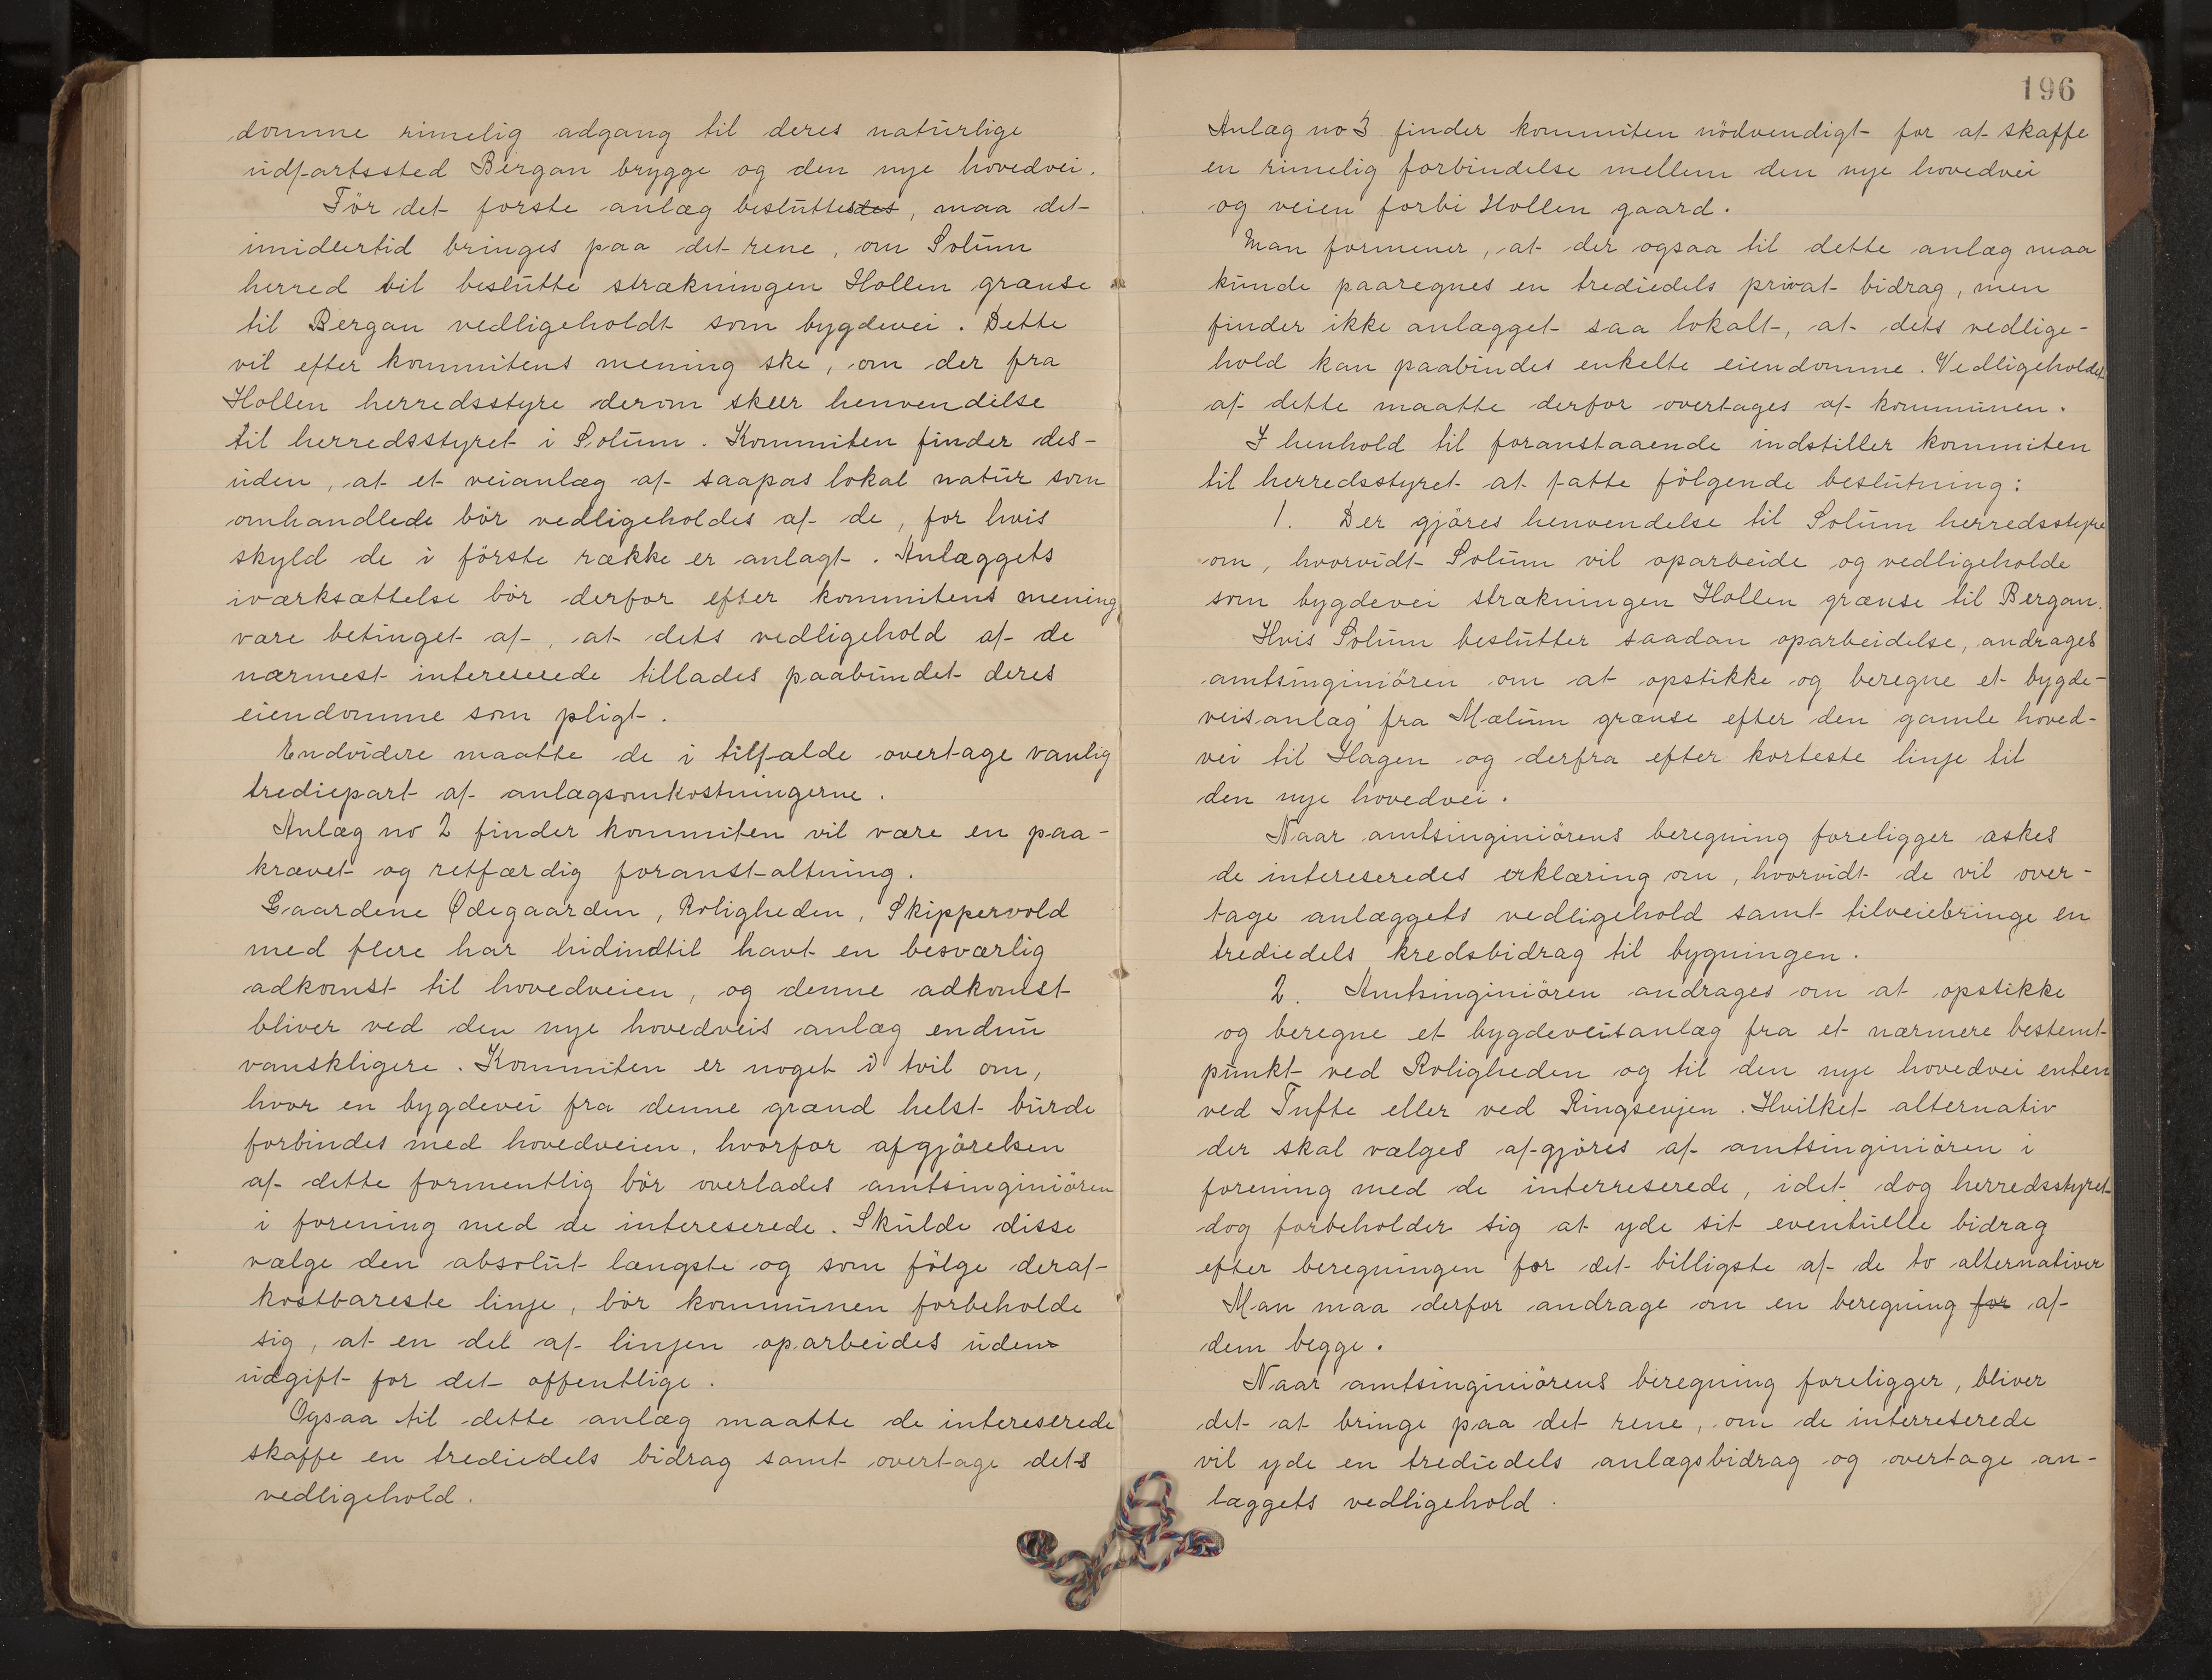 domme rimelig adgang til deres naturlige
udfartssted Bergan brygge og den nye hovedvei.
Før det forste anlæg besluttesdes, maa det
imidlertid bringes paa det rene, om Solum
herred vil beslutte strækningen Hollen grænse
til Bergan vedligeholdt som bygdevei. Dette
vil efter kommitens mening ske, om der fra
Hollen herredsstyre derom skeer henvendelse
til herredsstyret i Solum. Kommiten finder des-
uden, at et veianlæg af saapas lokal natur som
omhandlede bör vedligeholdes af de, for hvis
skyld de i förste række er anlagt. Anlæggets
iværksættelse bör derfor efter kommitens mening
være betinget af, at dets vedligehold af de
nærmest intereserede tillades paabundet deres
eiendomme som pligt.
Endvidere maatte de i tilfælde overtage vanlig
trediepart af anlægsomkostningerne.
Anlæg no 2 finder kommiten vil være en paa-
krævet og retfærdig foranstaltning.
Gaardene Ødegaarden, Roligheden, Skippervold
med flere har hidindtil havt en besværlig
adkomst til hovedveien, og denne adkomst
bliver ved den nye hovedveis anlæg endnu
vanskligere. Kommiten er noget i tvil om,
hvor en bygdevei fra denne grænd helst burde
forbindes med hovedveien, hvorfor afgjörelsen
af dette formentlig bör overlades amtsinginiören
i forening med de intereserede. Skulde disse
vælge den absolut længste og som fölge deraf
kostbareste linje, bör kommunen forbeholde
sig, at en del af linjen oparbeides uden
udgift for det offentlige.
Ogsaa til dette anlæg maatte de intereserede
skaffe en trediedels bidrag samt overtage dets
vedligehold.
196
Anlæg no 3 finder kommiten nödvendigt for at skaffe
en rimelig forbindelse mellem den nye hovedvei
og veien forbi Hollen gaard.
Man formener, at der ogsaa til dette anlæg maa
kunde paaregnes en trediedels privat bidrag, men
finder ikke anlægget saa lokalt, at dets vedlige-
hold kan paabindes enkelte eiendomme. Vedligeholdet
af dette maatte derfor overtages af kommunen.
I henhold til foranstaaende indstiller kommiten
til herredsstyret at fatte fölgende beslutning:
1. Der gjöres henvendelse til Solum herredsstyre
om, hvorvidt Solum vil oparbeide og vedligeholde
som bygdevei strækningen Hollen grænse til Bergan.
Hvis Solum beslutter saadan oparbeidelse, andrages
amtsinginiören om at opstikke og beregne et bygde-
veisanlæg fra Mælum grænse efter den gamle hoved-
vei til Hagen og derfra efter korteste linje til
den nye hovedvei.
Naar amtsinginiörens beregning foreligger æskes
de intereseredes erklæring om, hvorvidt de vil over-
tage anlæggets vedligehold samt tilveiebringe en
trediedels kredsbidrag til bygningen.
2. Amtsinginiören andrages om at opstikke
og beregne et bygdeveisanlæg fra et nærmere bestemt
punkt ved Roligheden og til den nye hovedvei enten
ved Tufte eller ved Ringsevjen. Hvilket alternativ
der skal vælges afgjöres af amtsinginiören i
forening med de interreserede, idet dog herredsstyret
dog forbeholder sig at yde sit eventuelle bidrag
efter beregningen for det billigste af de to alternativer
Man maa derfor andrage om en beregning for af
dem begge.
Naar amtsinginiörens beregning foreligger, bliver
det at bringe paa det rene, om de interreserede
vil yde en trediedels anlægsbidrag og overtage an-
læggets vedligehold.